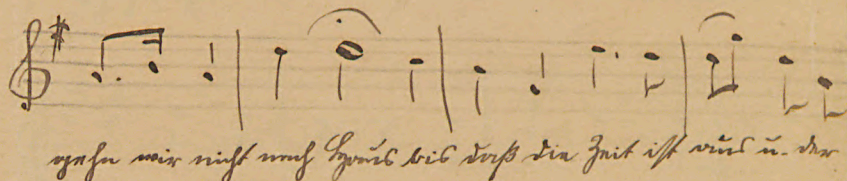 gehn wir nicht nach Haus bis daß die Zeit ist aus u. der